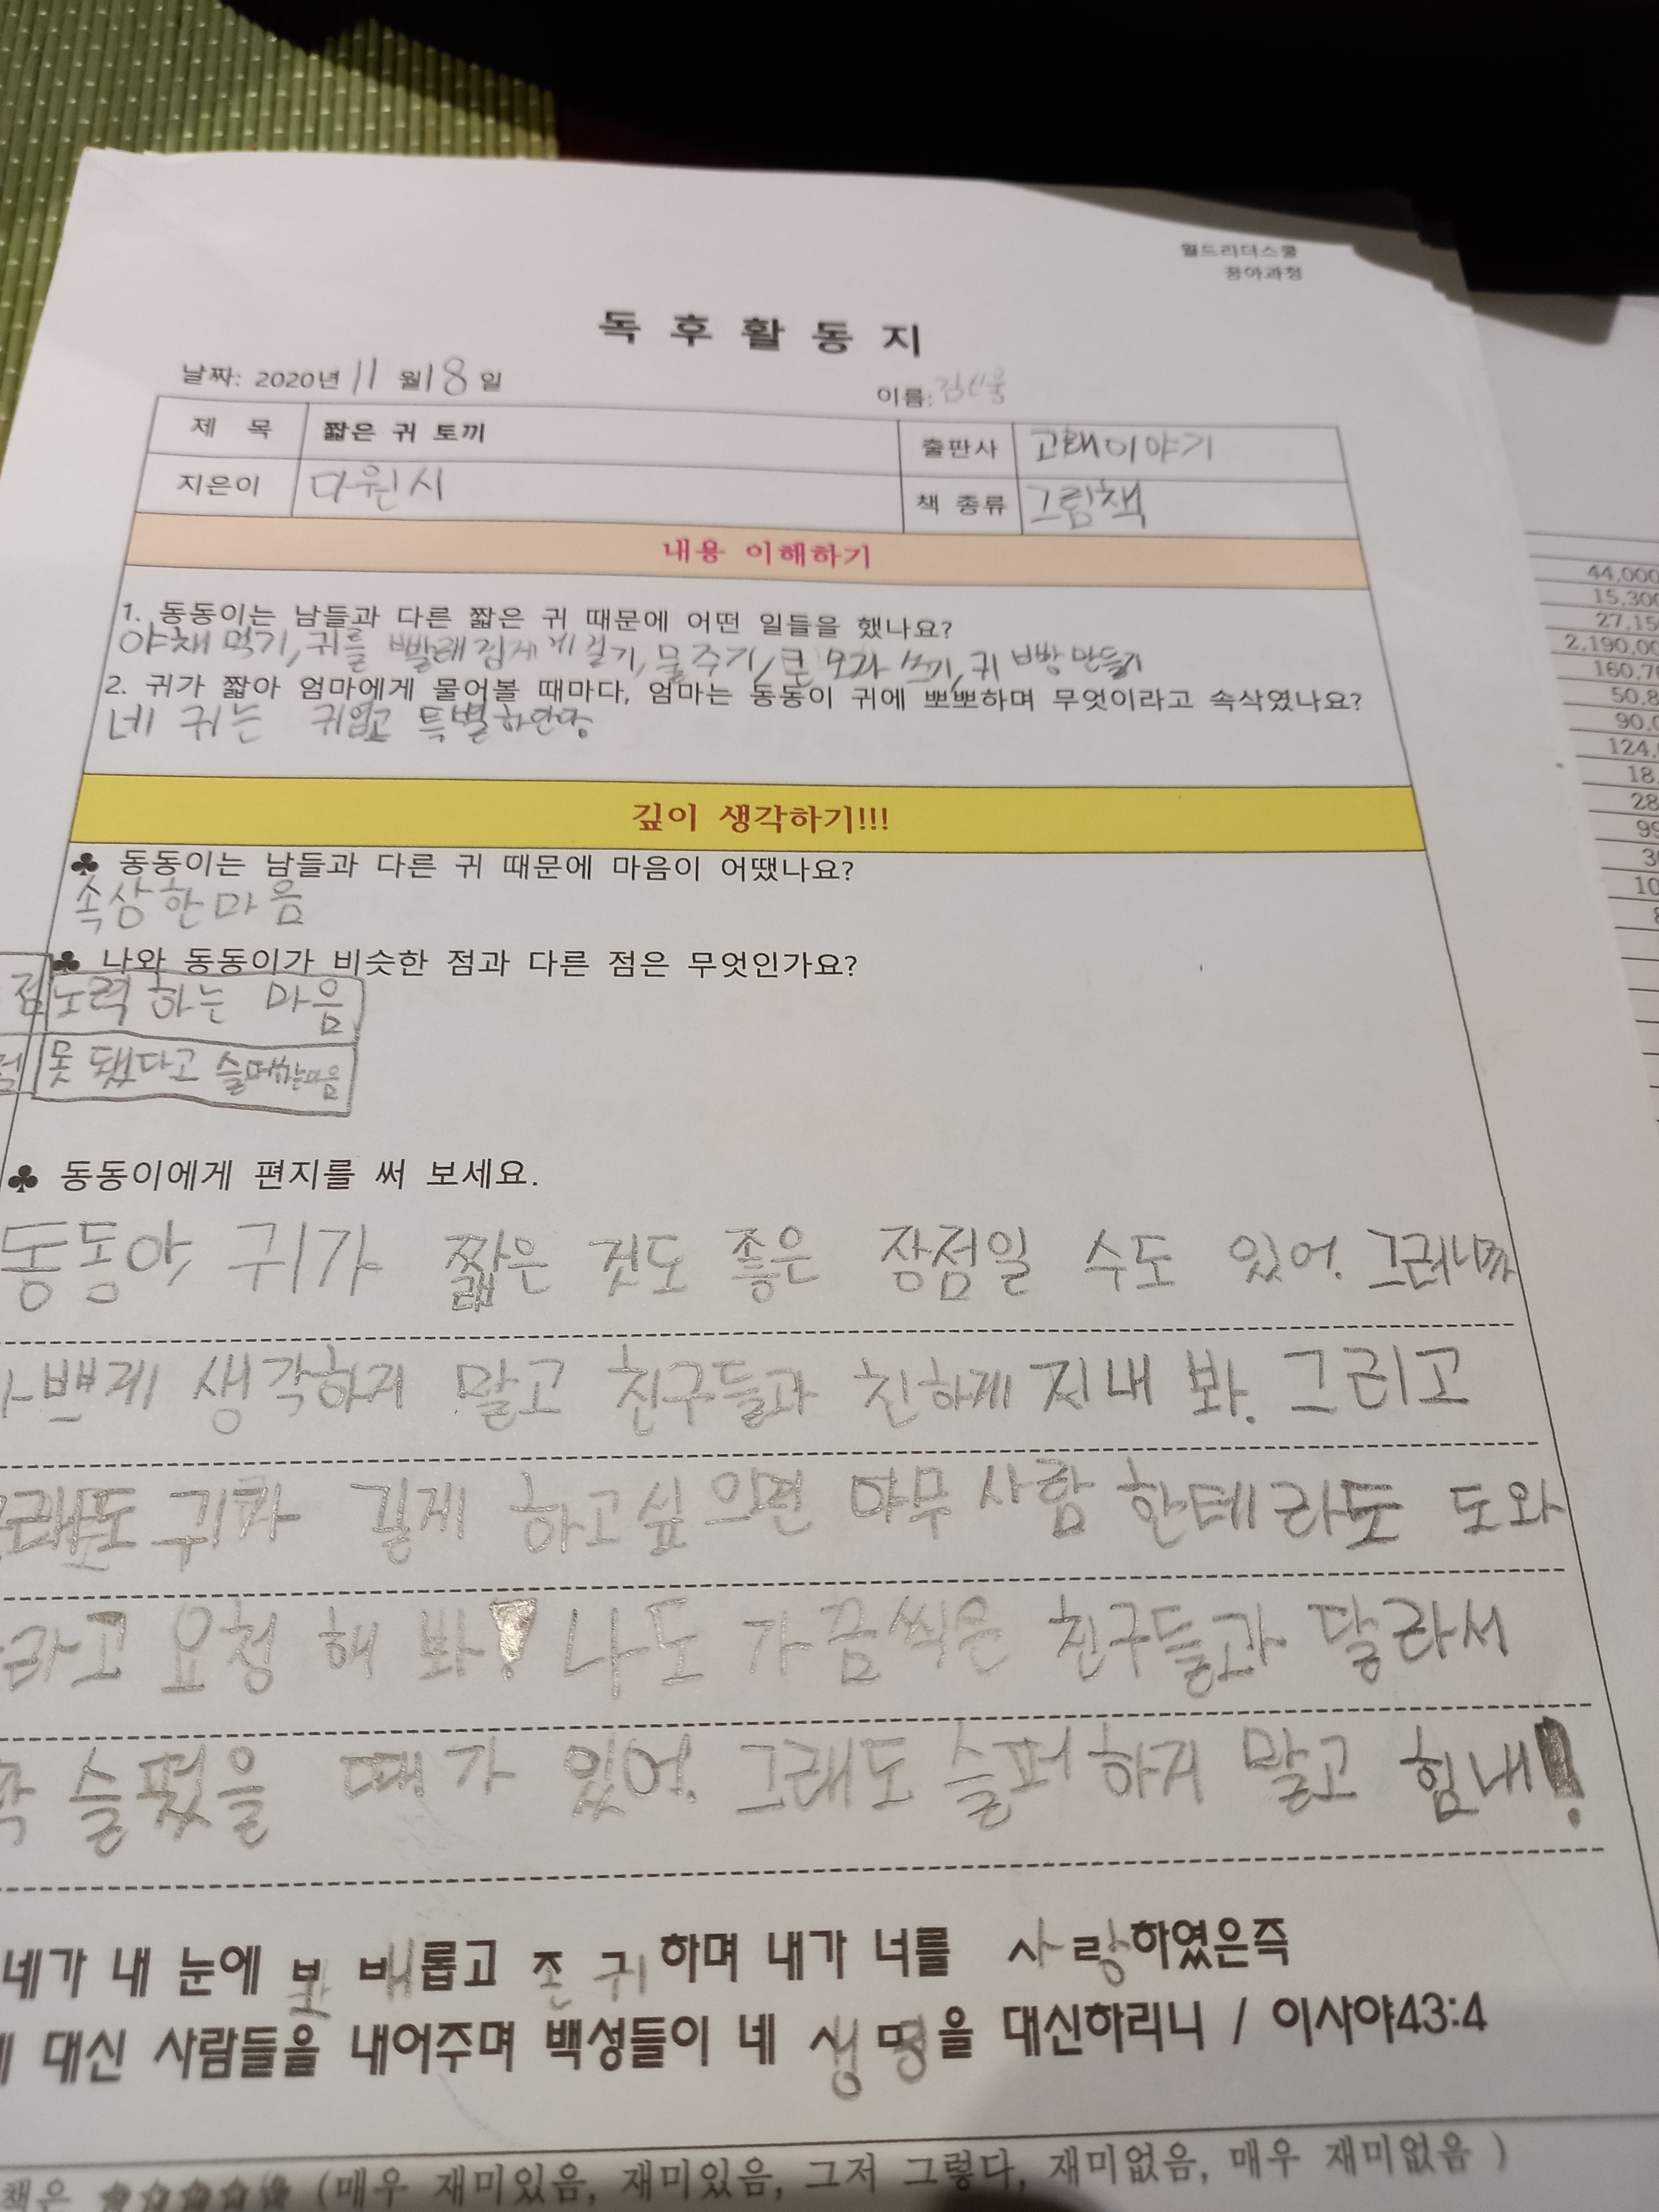 월드리더스쿨
꿈아과정
독 후 활 동 지
날짜: 2020년 11 월 18 일
이름: 김
제 목 짧은 귀 토끼 출판사 고래이야기
지은이 다원시 책 종류 그림책
내용 이해하기
1. 동동이는 남들과 다른 짧은 귀 때문에 어떤 일들을 했나요?
야채 먹기, 귀를 빨래집게에 걸기, 물 주기, 큰 모자 쓰기, 귀 빵 만들기
2. 귀가 짧아 엄마에게 물어볼 때마다, 엄마는 동동이 귀에 뽀뽀하며 무엇이라고 속삭였나요?
네 귀는 귀엽고 특별하단당
깊이 생각하기!!!
♣ 동동이는 남들과 다른 귀 때문에 마음이 어땠나요?
속상한 마음
♣ 나와 동동이가 비슷한 점과 다른 점은 무엇인가요?
점 노력 하는 마음
점 못 됐다고 슬퍼하는 마음
♣ 동동이에게 편지를 써 보세요.
동동아, 귀가 짧은 것도 좋은 장점일 수도 있어. 그러니까
나쁘게 생각하지 말고 친구들과 친하게 지내 봐. 그리고
그래도 귀가 길게 하고싶으면 아무 사람 한테라도 도와
라고 요청 해 봐! 나도 가끔씩은 친구들과 달라서
슬펐을 때가 있어. 그래도 슬퍼하지 말고 힘내!
네가 내 눈에 보배롭고 존귀하며 내가 너를 사랑하였은즉
대신 사람들을 내어주며 백성들이 네 생명을 대신하리니 / 이사야43:4
책은 ★★★★★ (매우 재미있음, 재미있음, 그저 그렇다, 재미없음, 매우 재미없음 )
44,000
15,300
27,15
2,190,00
160,70
50,8
90,0
124,
18,
28
99
3
10